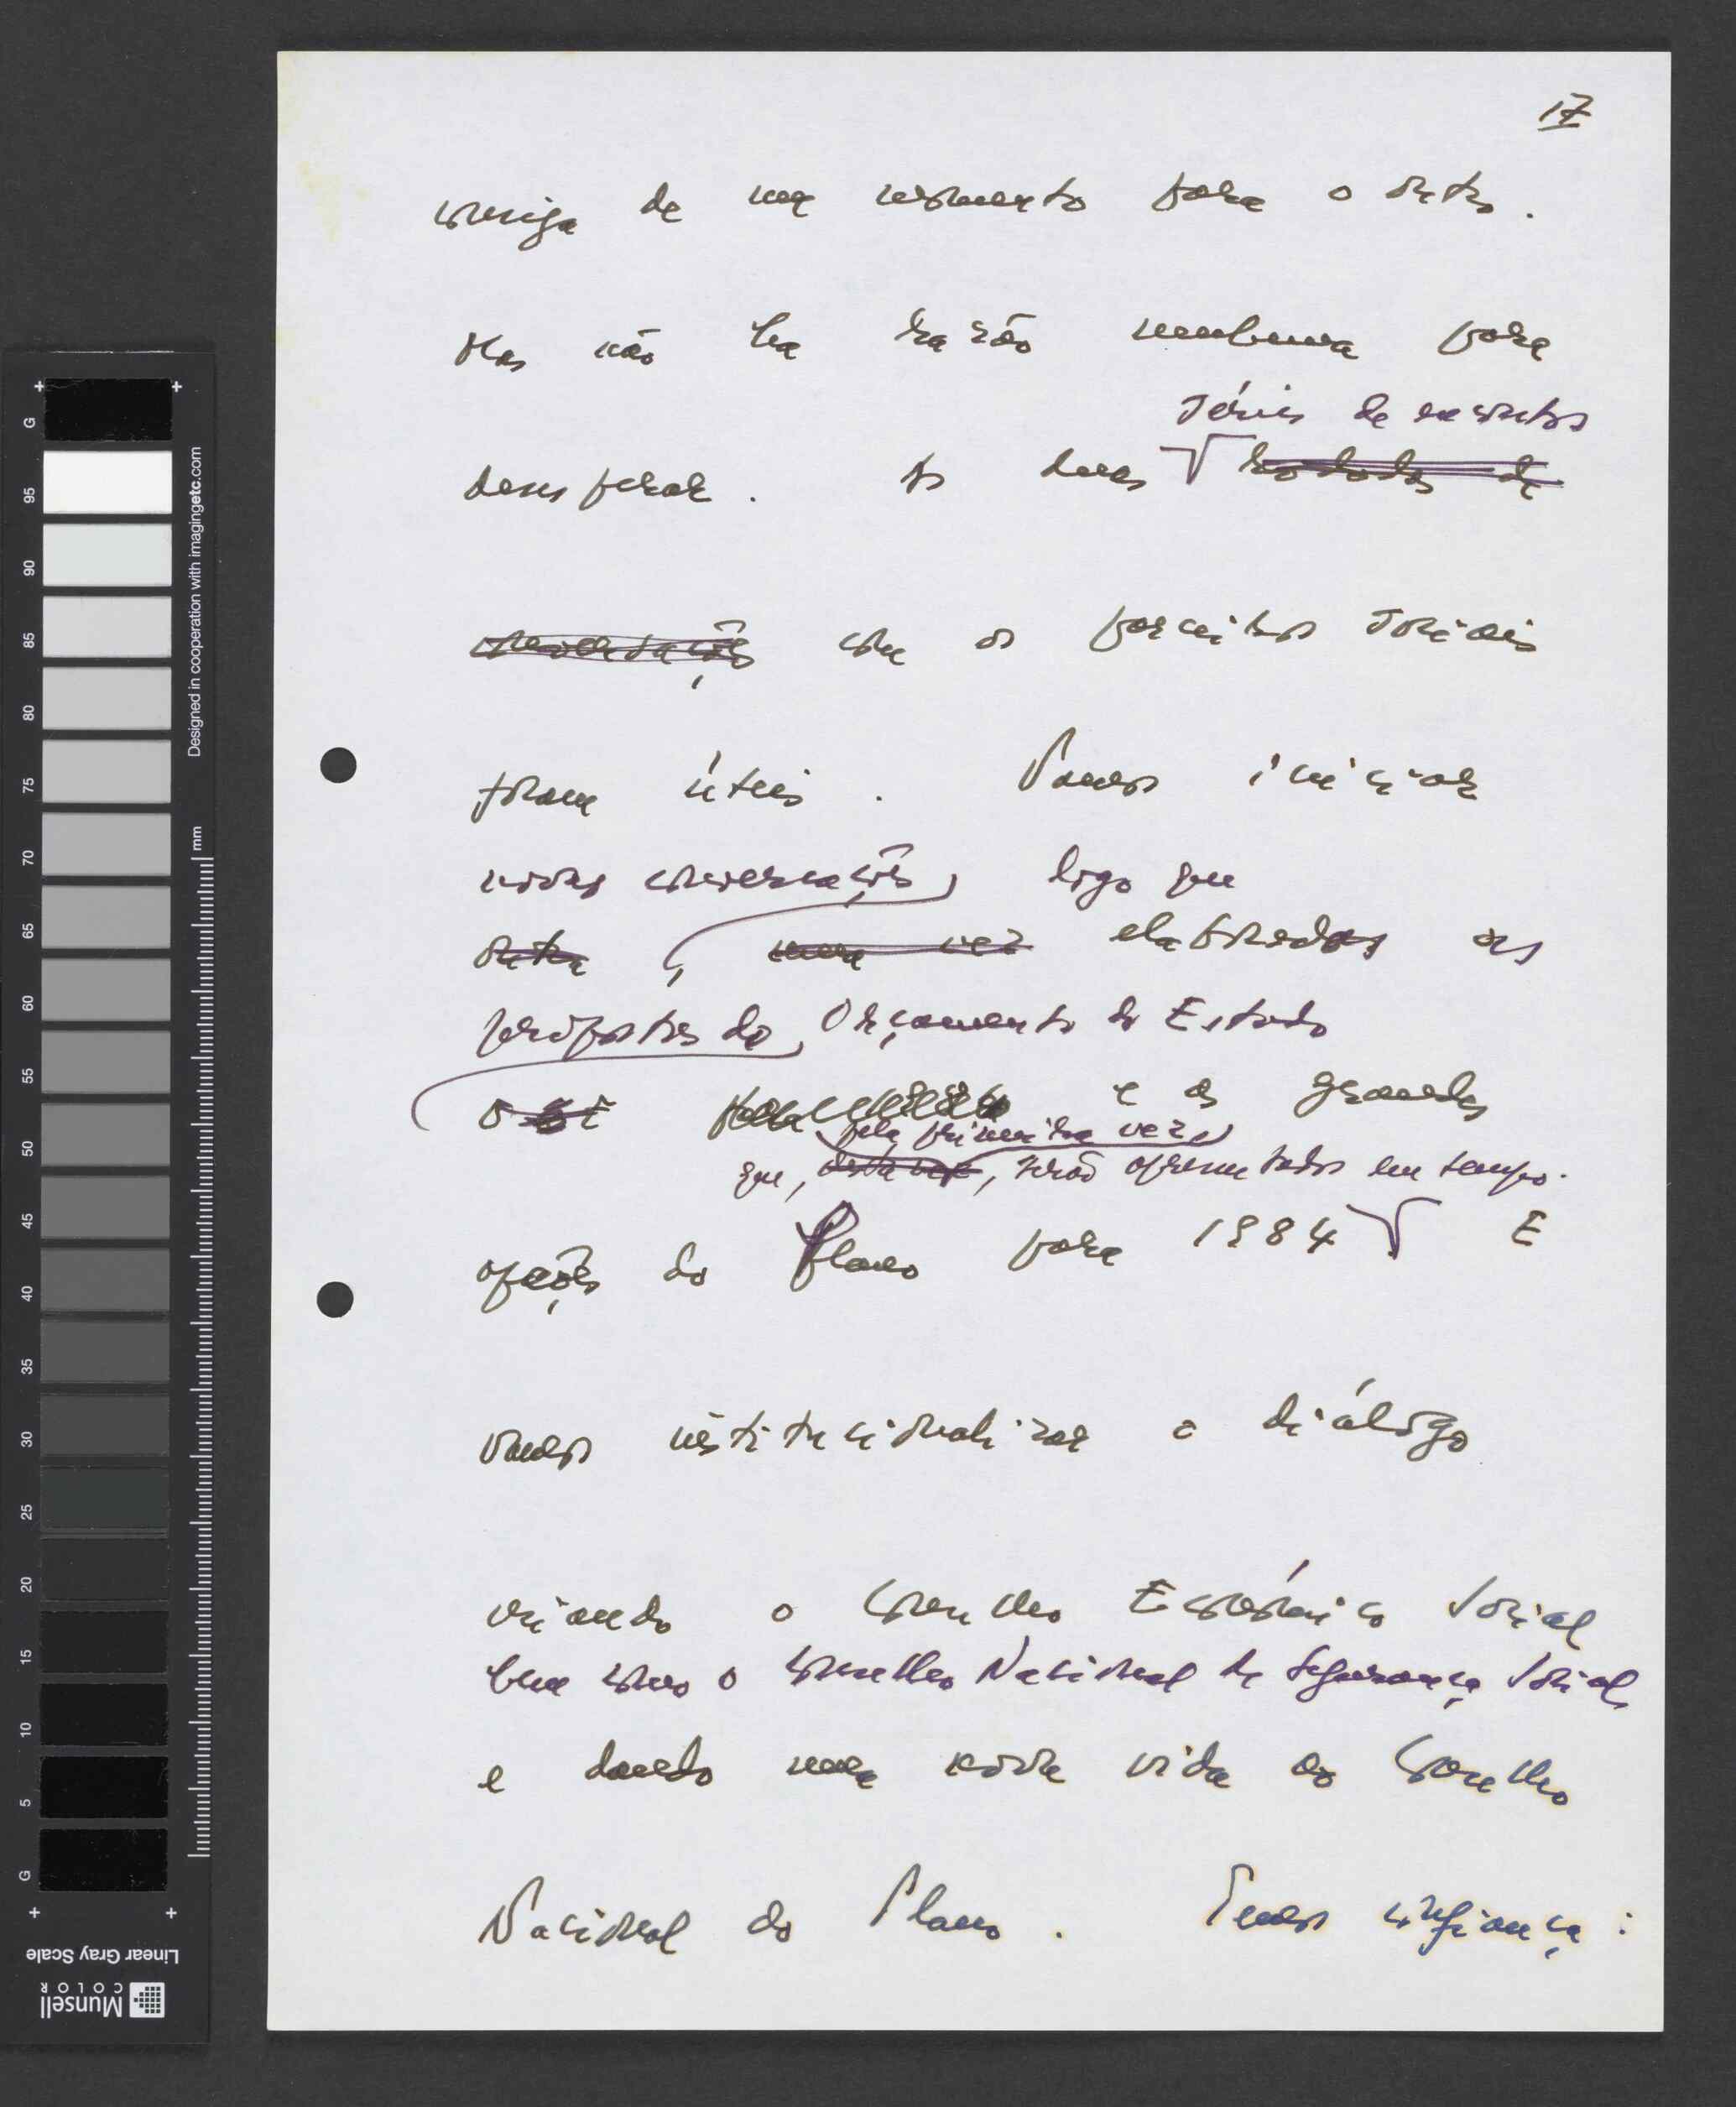 17
consiga de um momento para o outro.
Mas não há razão nenhuma para
séries de encontros
desesperar. As duas rodadas de
conversações com os parceiros sociais
foram úteis. Vamos iniciar
novas conversações, logo que
outra, uma vez elaboradas as
propostas do Orçamento do Estado
o e as grandes
pela primeira vez,
que, desta vez, serão apresentados em tempo.
opções do Plano para 1984 E
vamos institucionalizar o diálogo
criando o Conselho Económico Social
bem como o Conselho Nacional de Segurança Social,
e dando uma nova vida ao Conselho
Nacional do Plano. Temos confiança:
G 95 90 85 80 75 70 65 60 55 50 45 40 35 30 25 20 15 10 5 G
mm
Designed in cooperation with imagingetc.com
Linear Gray Scale
Munsell
COLOR